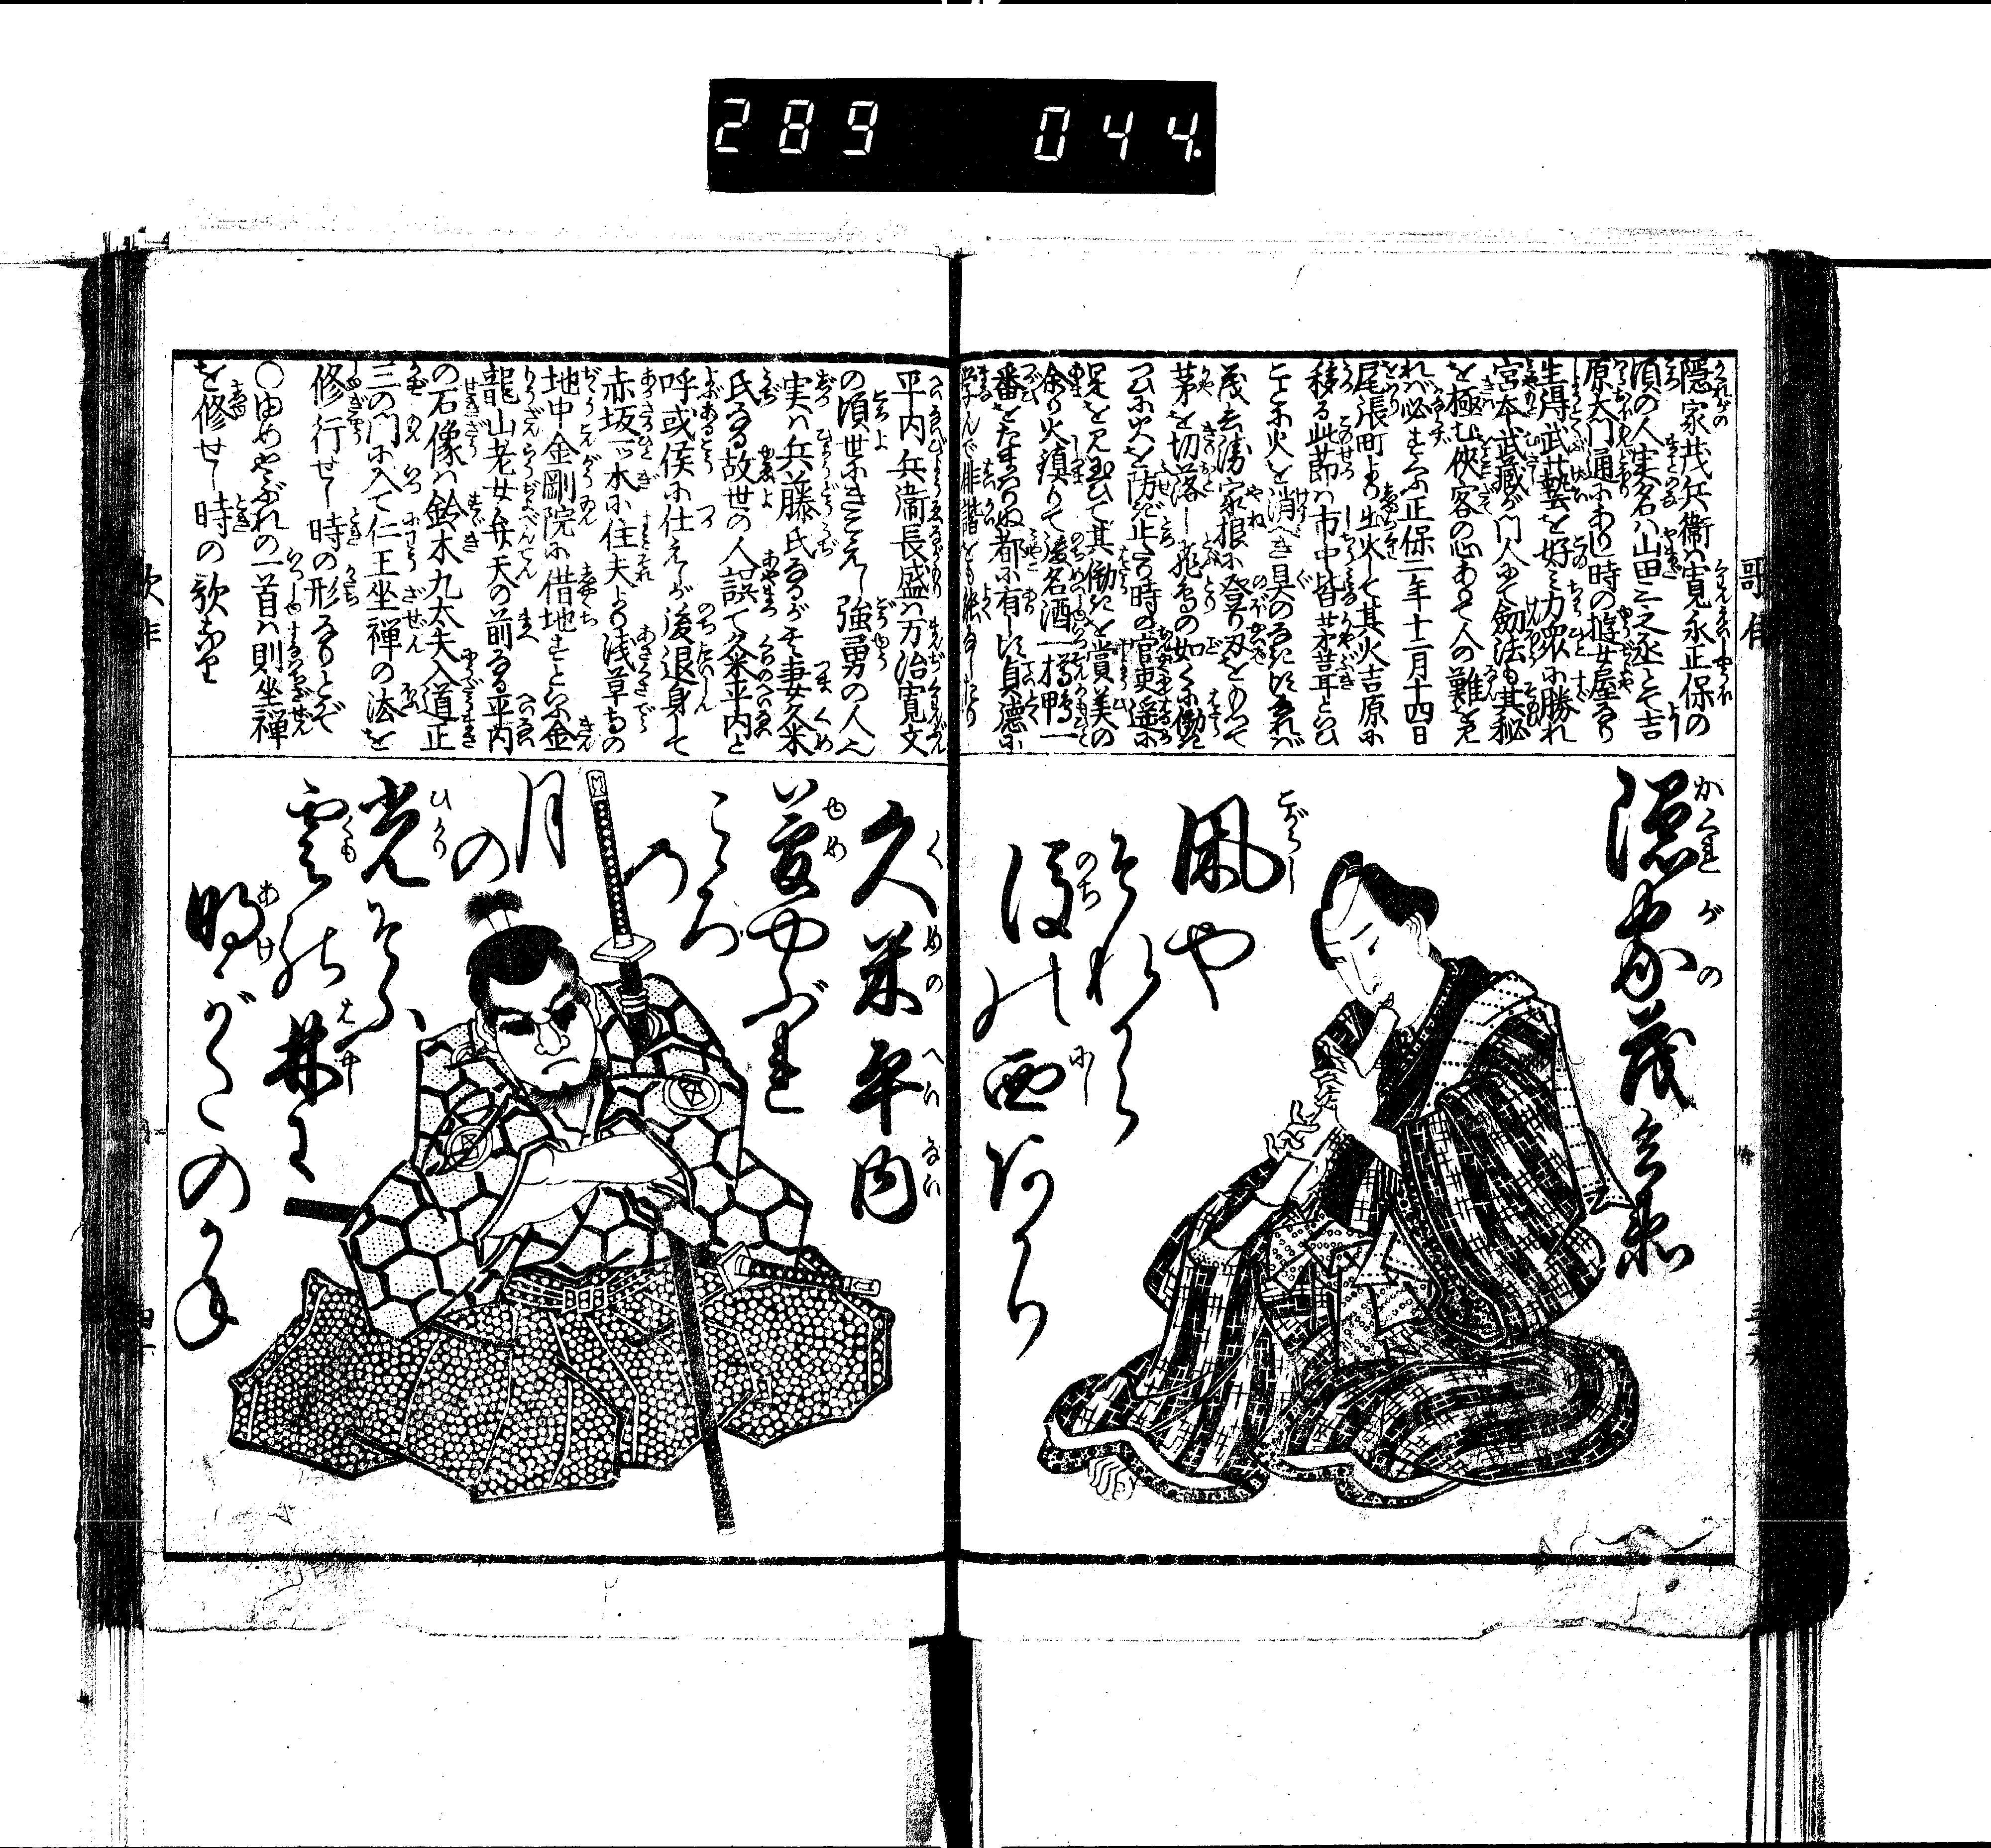 289 044.
隠家茂兵衛ハ寛永正保の
頃の人実名ハ山田三之丞とて吉
原大門通にあり一時の遊女屋なり
生得武芸を好ミ力衆に勝れ
宮本武蔵が門人にて劔法も其秘
を極む侠客の心あつて人の難を見
れバ必すくふ正保二年十二月十四日
尾張町より出火して其火吉原に
移る此節ハ市中皆茅葺耳といひ
ことに火を消べき具のなき比なれバ
茂兵衛家根に登り刃をもつて
茅を切落し飛鳥の如くに働き
つひに火を防ぎ止る時の官吏遥に
是を見玉ひて其働きを賞美の
余り火鎮りて後名酒一樽鴨一
番をたまハりぬ都に有し比貞徳に
学んで俳諧をも能なしたり
隠家茂兵衛
かくれがの
凩や
こがらし
それから
後の西からう
平内兵衛長盛ハ万治寛文
の頃世にきこえし強勇の人也
実ハ兵藤氏なるが其妻久米
氏なる故世の人誤て久米平内と
呼或侯に仕えしが後退身して
赤坂一ッ木に住夫より浅草寺の
地中金剛院に借地すといふ金
龍山老女弁天の前なる平内
の石像ハ鈴木九太夫入道正
三の門に入て仁王坐禅の法を
修行せし時の形なりとぞ
○ゆめやぶれの一首ハ則坐禅
を修せし時の歌なり
久米平内
くめのへいない
夢やぶれ
こゝろ
の
月
の
光そふ
雲の林に
明がたのかね